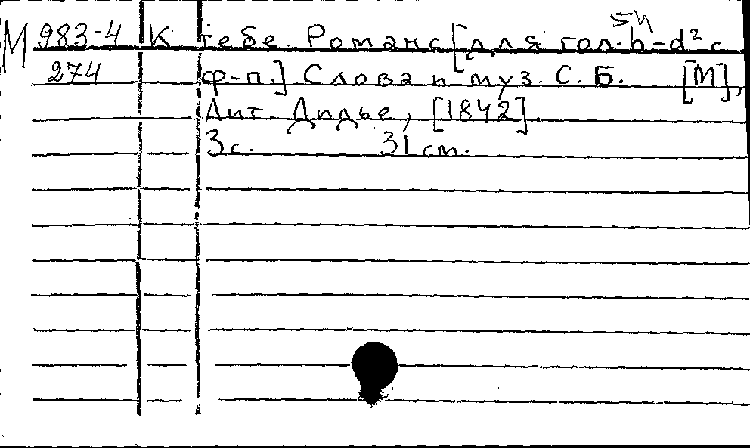 М 983-4 К тебе. Романс [для гол. h-d² с
274 ф-п.] Слова и муз. С. Б. [М],
Лит. Дидье, [1842].
3 с. 31 см.